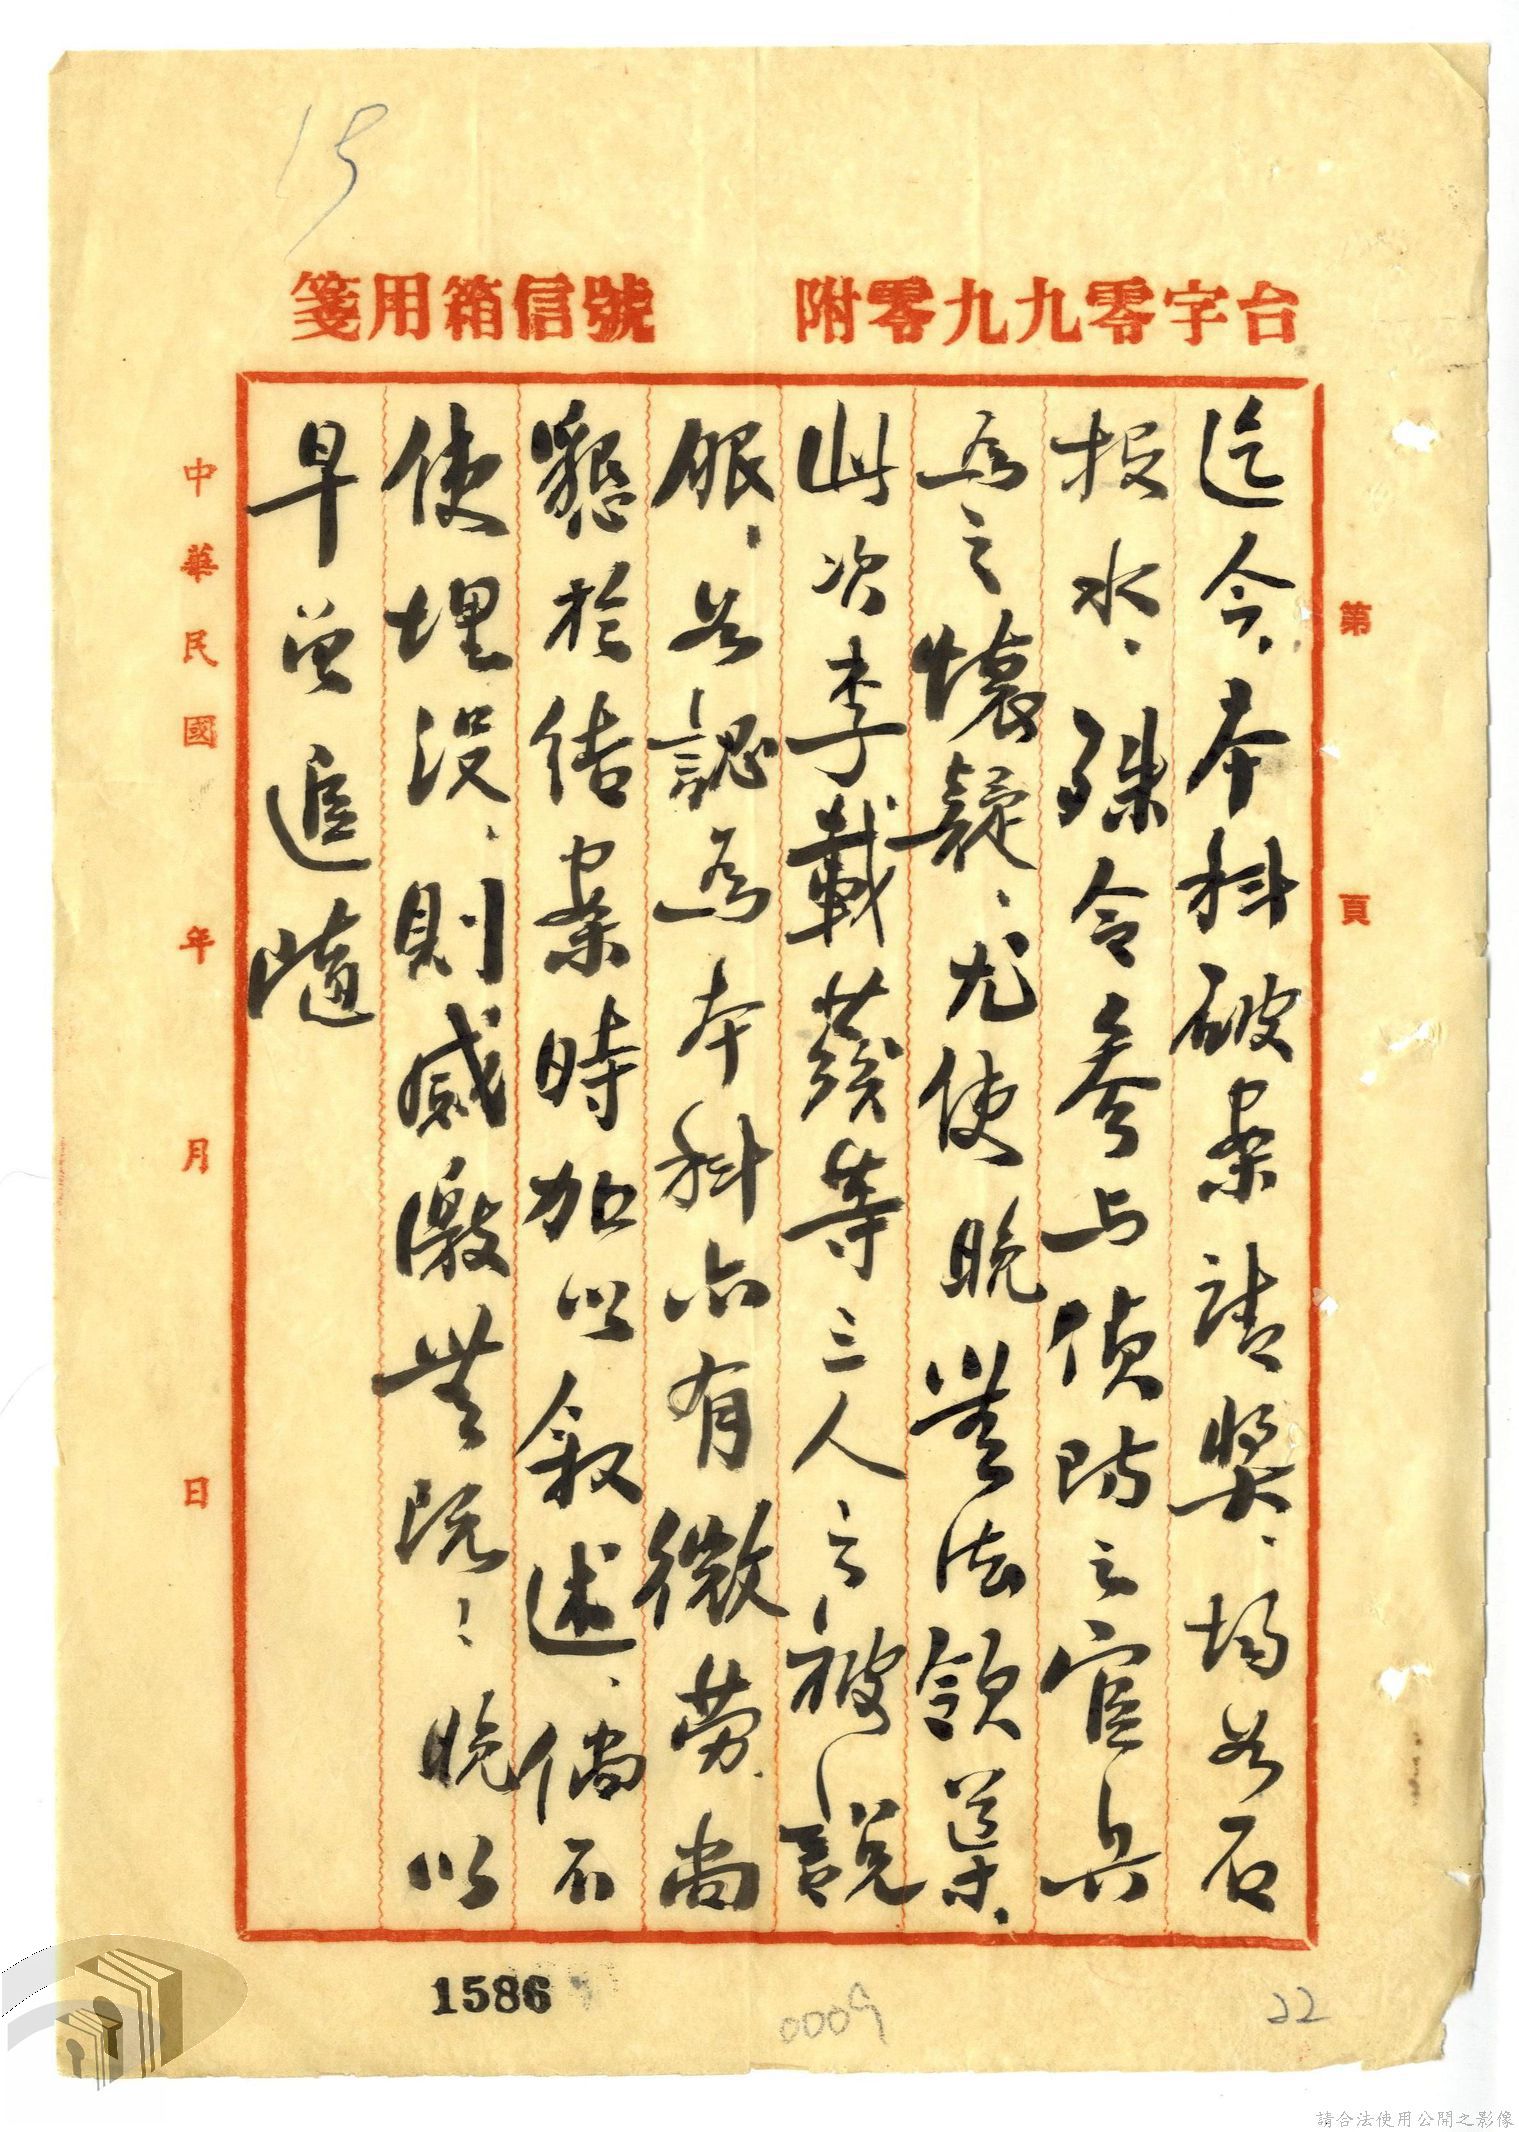 15
台字零九九零附
號信箱用箋
第
頁
迄今、本科破案請獎、均如石
投水、殊令參与偵防之官兵
為之懷疑、尤使晚無法領導、
此次李載葵等三人之被說
服、如認為本科亦有微勞、尚
懇於結案時加以敘述、倘不
使埋沒、則感激無既！晚以
早曾追隨
中華民國 年 月 日
1586
0009
22
請合法使用公開之影像